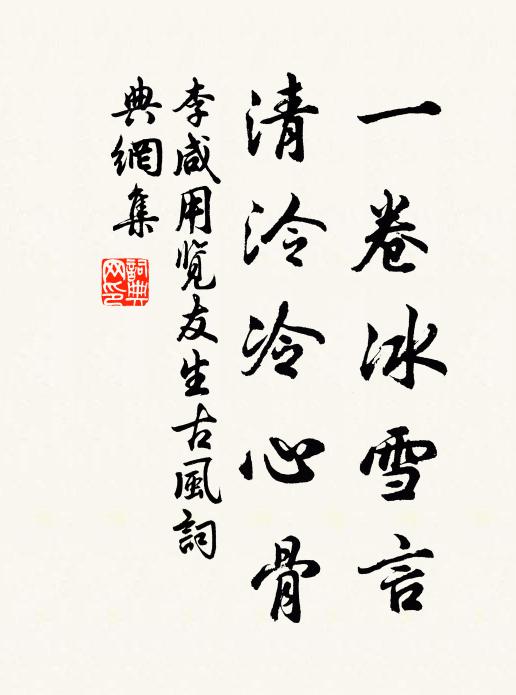 一卷冰雪言
清泠冷心骨
李咸用览友生古風詞
典網集
詞典
网印